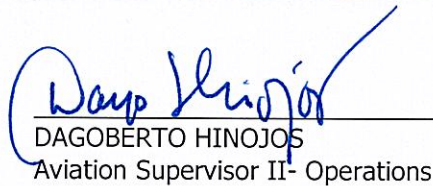 Dago Hinojos
DAGOBERTO HINOJOS
Aviation Supervisor II- Operations